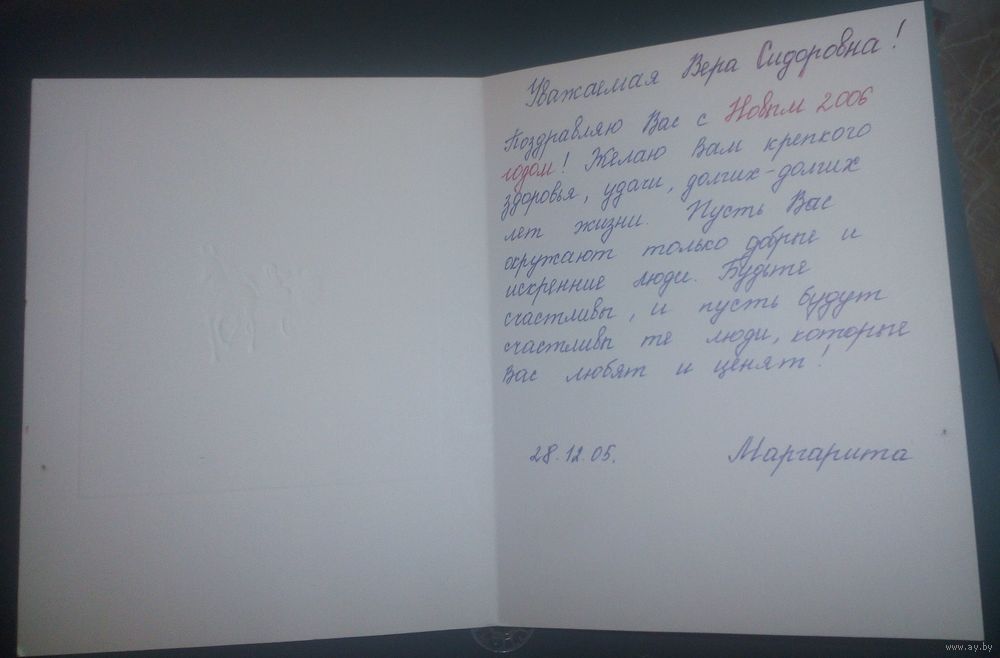 Уважаемая Вера Сидоровна!
Поздравляю Вас с Новым 2006
годом! Желаю Вам крепкого
здоровья, удачи, долгих-долгих
лет жизни. Пусть Вас
окружают только добрые и
искренние люди. Будьте
счастливы, и пусть будут
счастливы те люди, которые
Вас любят и ценят!
28.12.05. Маргарита
www.ay.by